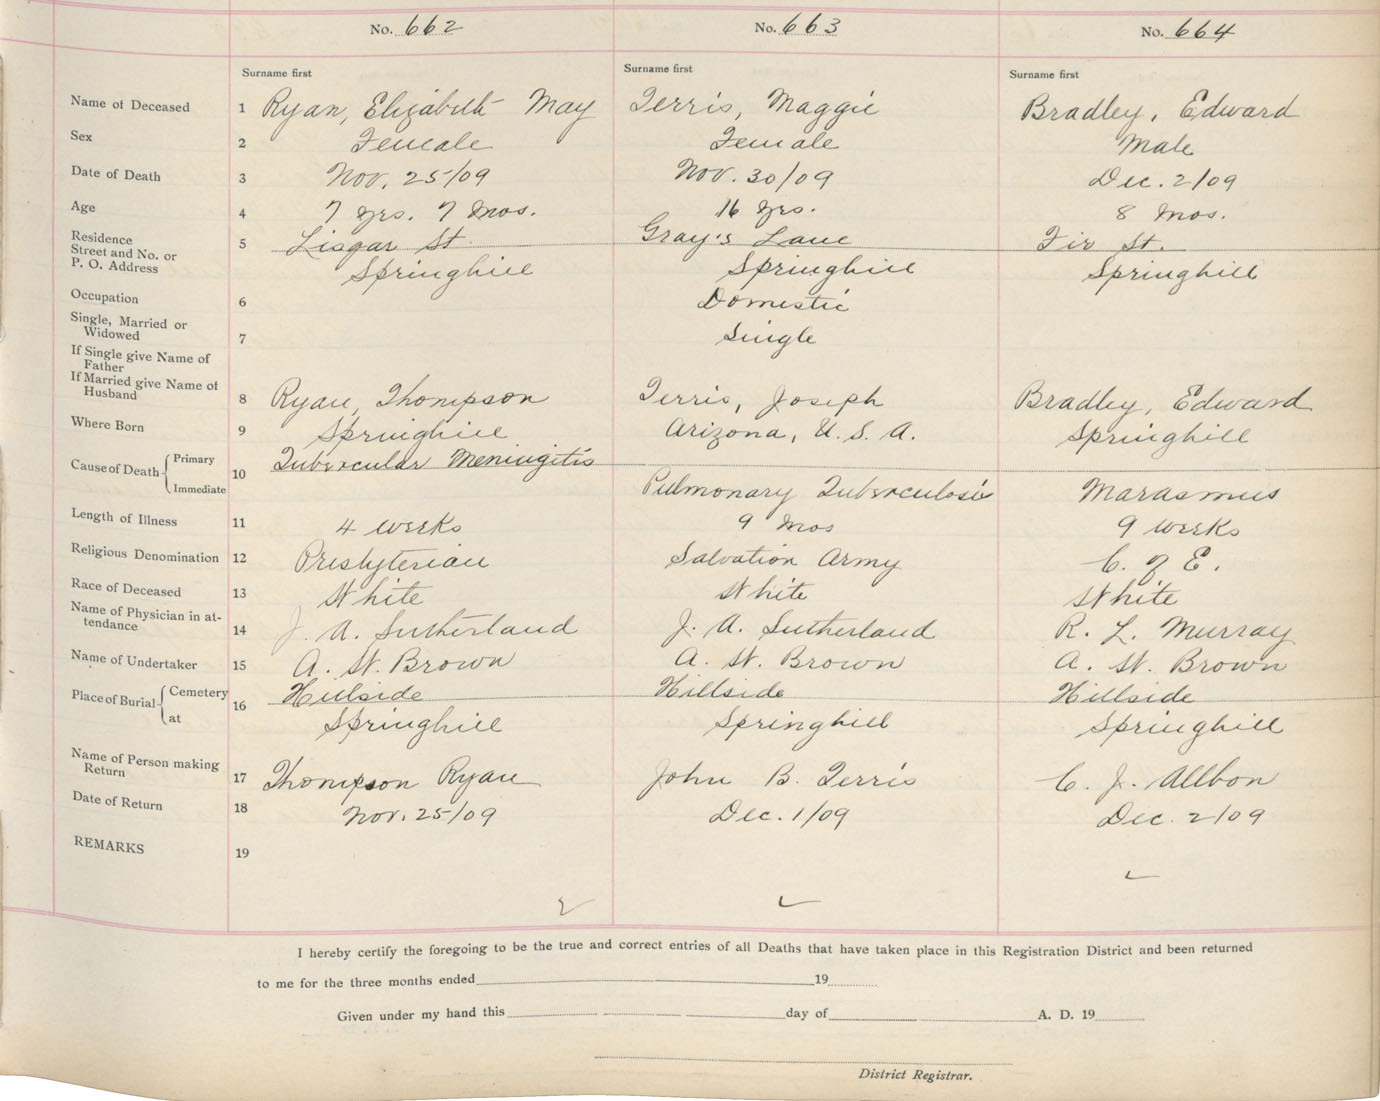 No. 662 No. 663 No. 664
Surname first Surname first Surname first
Name of Deceased 1 Ryan, Elizabeth May Terris, Maggie Bradley, Edward
Sex 2 Female Female Male
Date of Death 3 Nov. 25/09 Nov. 30/09 Dec. 2/09
Age 4 7 yrs. 7 mos. 16 yrs. 8 mos.
Residence 5 Lisgar St. Gray's Lane Fir St.
Street and No. or
P. O. Address Springhill Springhill Springhill
Occupation 6 Domestic
Single, Married or
Widowed 7 Single
If Single give Name of
Father
If Married give Name of
Husband 8 Ryan, Thompson Terris, Joseph Bradley, Edward
Where Born 9 Springhill Arizona, U. S. A. Springhill
Cause of Death Primary 10 Tubercular Meningitis
Immediate Pulmonary Tuberculosis Marasmus
Length of Illness 11 4 weeks 9 mos 9 weeks
Religious Denomination 12 Presbyterian Salvation Army C. of E.
Race of Deceased 13 White White White
Name of Physician in at-
tendance 14 J. A. Sutherland J. A. Sutherland R. L. Murray
Name of Undertaker 15 A. W. Brown A. W. Brown A. W. Brown
Place of Burial Cemetery 16 Hillside Hillside Hillside
at Springhill Springhill Springhill
Name of Person making
Return 17 Thompson Ryan John B. Terris C. J. Allbon
Date of Return 18 Nov. 25/09 Dec. 1/09 Dec. 2/09
REMARKS 19
I hereby certify the foregoing to be the true and correct entries of all Deaths that have taken place in this Registration District and been returned
to me for the three months ended 19
Given under my hand this day of A. D. 19
District Registrar.